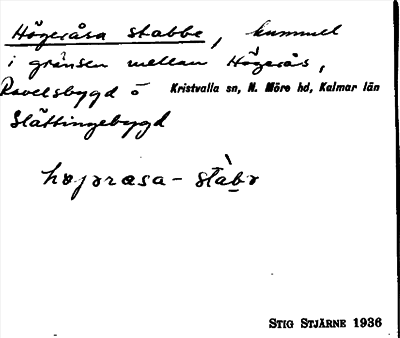 Högeråsa stabbe, kummel
i gränsen mellan Högerås,
Ravelsbygd o Kristvalla sn, N. Möre hd, Kalmar län
Slättingebygd
högərasa - stàbə
STIG STJÄRNE 1936